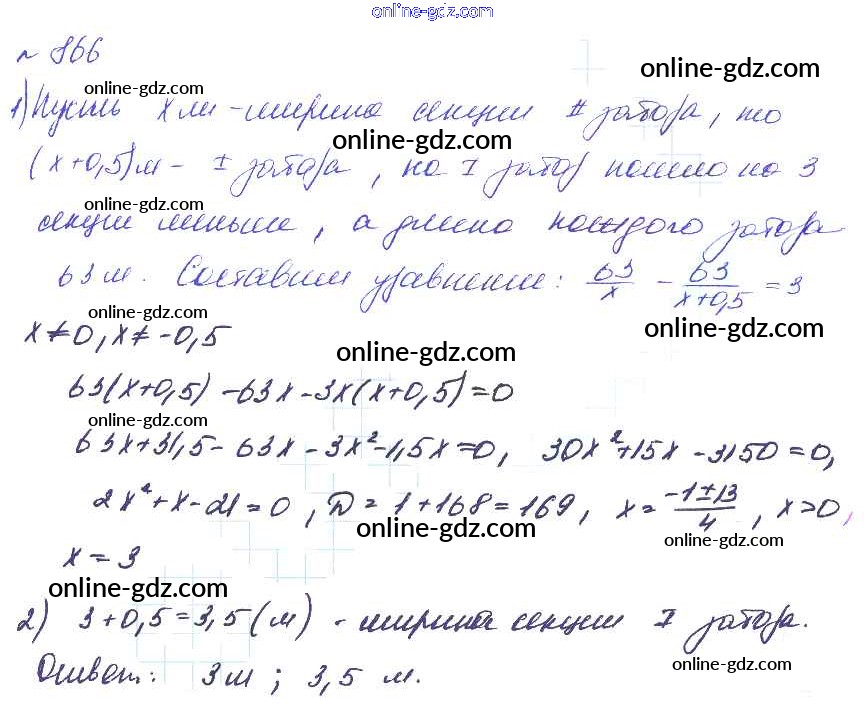 online-gdz.com
№ 866
online-gdz.com
online-gdz.com
1) Пусть х м - ширина секции II забора, то
online-gdz.com
(х+0,5)м - I забора, на I забор пошло на 3
online-gdz.com
online-gdz.com
секции меньше, а длина каждого забора
63 м. Составим уравнение: 63/x - 63/(x+0,5) = 3
online-gdz.com
online-gdz.com
x≠0, x≠-0,5
online-gdz.com
63(x+0,5) -63x -3x(x+0,5)=0
online-gdz.com
63x+31,5-63x-3x²-1,5x=0, 30x²+15x-3150=0,
2x²+x-21=0, D=1+168=169, x=(-1±13)/4, x>0,
online-gdz.com
online-gdz.com
x = 3
online-gdz.com
2) 3+0,5=3,5(м) - ширина секции I забора.
online-gdz.com
Ответ: 3м; 3,5 м.